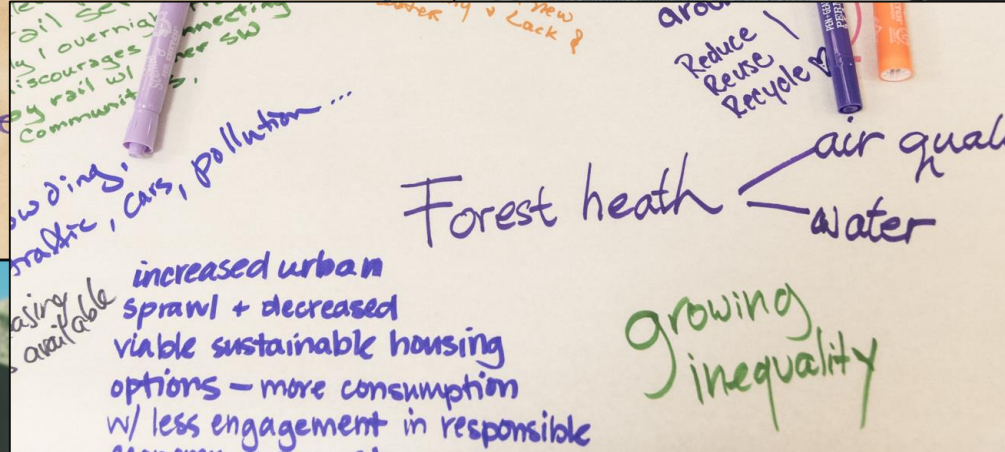 overnight
discourages connecting
by rail w/ SW
Communit s.
new
water y + Lack
Reduce
Reuse
Recycle
owding,
traffic, cars, pollution...
Forest heath
air qual
water
increased urban
sprawl + decreased
viable sustainable housing
options – more consumption
w/ less engagement in responsible
available
growing
inequality